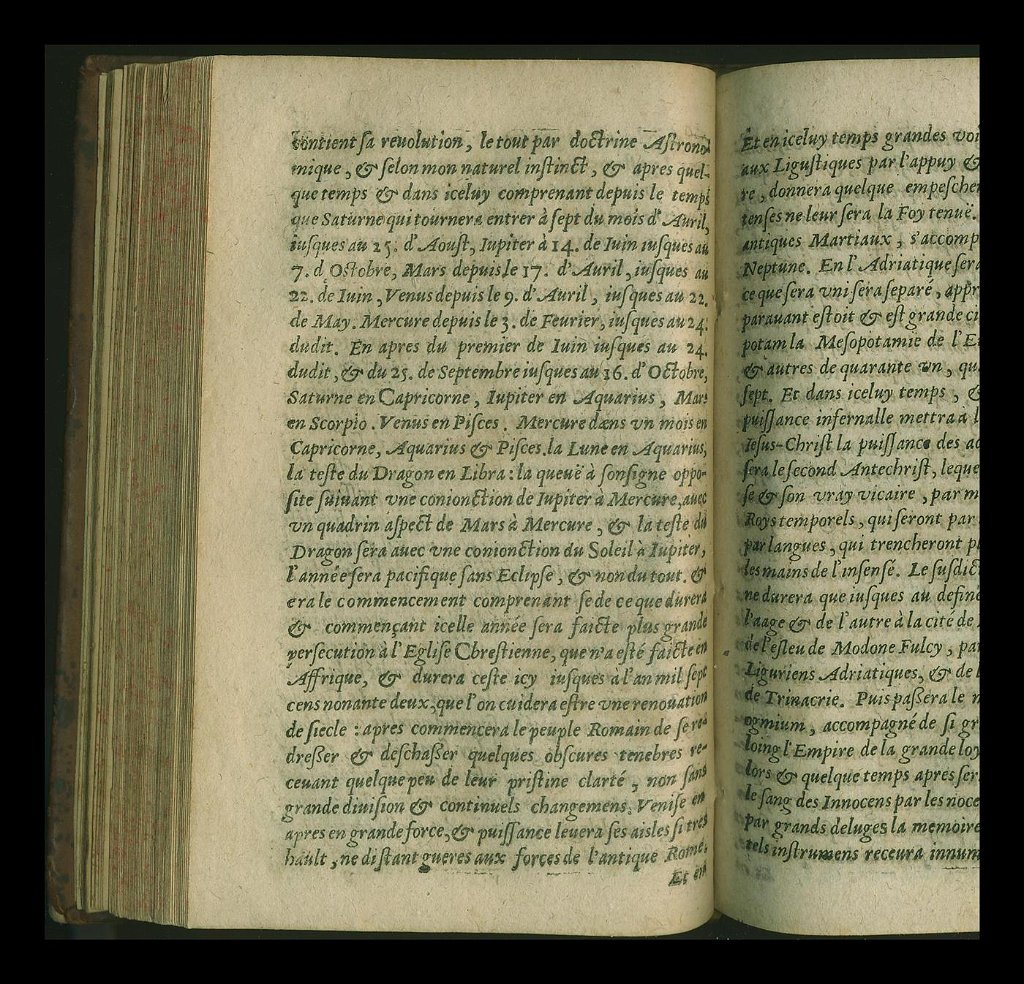 contient sa reuolution, le tout par doctrine Astrono
mique, & selon mon naturel instinct, & apres quel-
que temps & dans iceluy comprenant depuis le temps
que Saturne qui tournera entrer à sept du mois d'Auril,
iusques au 25. d'Aoust, Iupiter à 14. de Iuin iusques au
7. d'Octobre, Mars depuis le 17. d'Auril, iusques au
22. de Iuin, Venus depuis le 9. d'Auril, iusques au 22.
de May. Mercure depuis le 3. de Feurier, iusques au 24.
dudit. En apres du premier de Iuin iusques au 24.
dudit, & du 25. de Septembre iusques au 16. d'Octobre,
Saturne en Capricorne, Iupiter en Aquarius, Mars
en Scorpio. Venus en Pisces. Mercure dans vn mois en
Capricorne, Aquarius & Pisces. la Lune en Aquarius,
la teste du Dragon en Libra: la queuë à son signe oppo-
site suiuant vne conionction de Iupiter à Mercure, auec
vn quadrin aspect de Mars à Mercure, & la teste du
Dragon sera auec vne conionction du Soleil à Iupiter,
l'année sera pacifique sans Eclipse, & non du tout. &
era le commencement comprenant se de ce que durera
& commençant icelle année sera faicte plus grande
persecution à l'Eglise Chrestienne, que n'a esté faicte en
Affrique, & durera ceste icy iusques à l'an mil sept
cens nonante deux, que l'on cuidera estre vne renouation
de siecle: apres commencera le peuple Romain de se re-
dresser & deschasser quelques obscures tenebres re-
ceuant quelque peu de leur pristine clarté, non sans
grande diuision & continuels changemens. Venise en
apres en grande force, & puissance leuera ses aisles si tres
hault, ne distant gueres aux forces de l'antique Rome.
Et en
Et en iceluy temps grandes voi
aux Ligustiques par l'appuy &
re, donnera quelque empeschem
tenses ne leur sera la Foy tenuë.
antiques Martiaux, s'accomp
Neptune. En l'Adriatique sera
ce que sera vni sera separé, appr
parauant estoit & est grande ci
potam la Mesopotamie de l'E
& autres de quarante vn, qu
sept. Et dans iceluy temps, &
puissance infernalle mettra à l
Iesus-Christ la puissance des ad
sera le second Antechrist, leque
se & son vray vicaire, par m
Roys temporels, qui seront par
par langues, qui trencheront pl
les mains de l'insensé. Le susdict
ne durera que iusques au define
l'aage & de l'autre à la cité de
de l'esleu de Modone Fulcy, pa
Liguriens Adriatiques, & de l
de Trinacrie. Puis passera le m
ogmium, accompagné de si gr
loing l'Empire de la grande loy
lors & quelque temps apres ser
le sang des Innocens par les noce
par grands deluges la memoire
tels instrumens receura innum